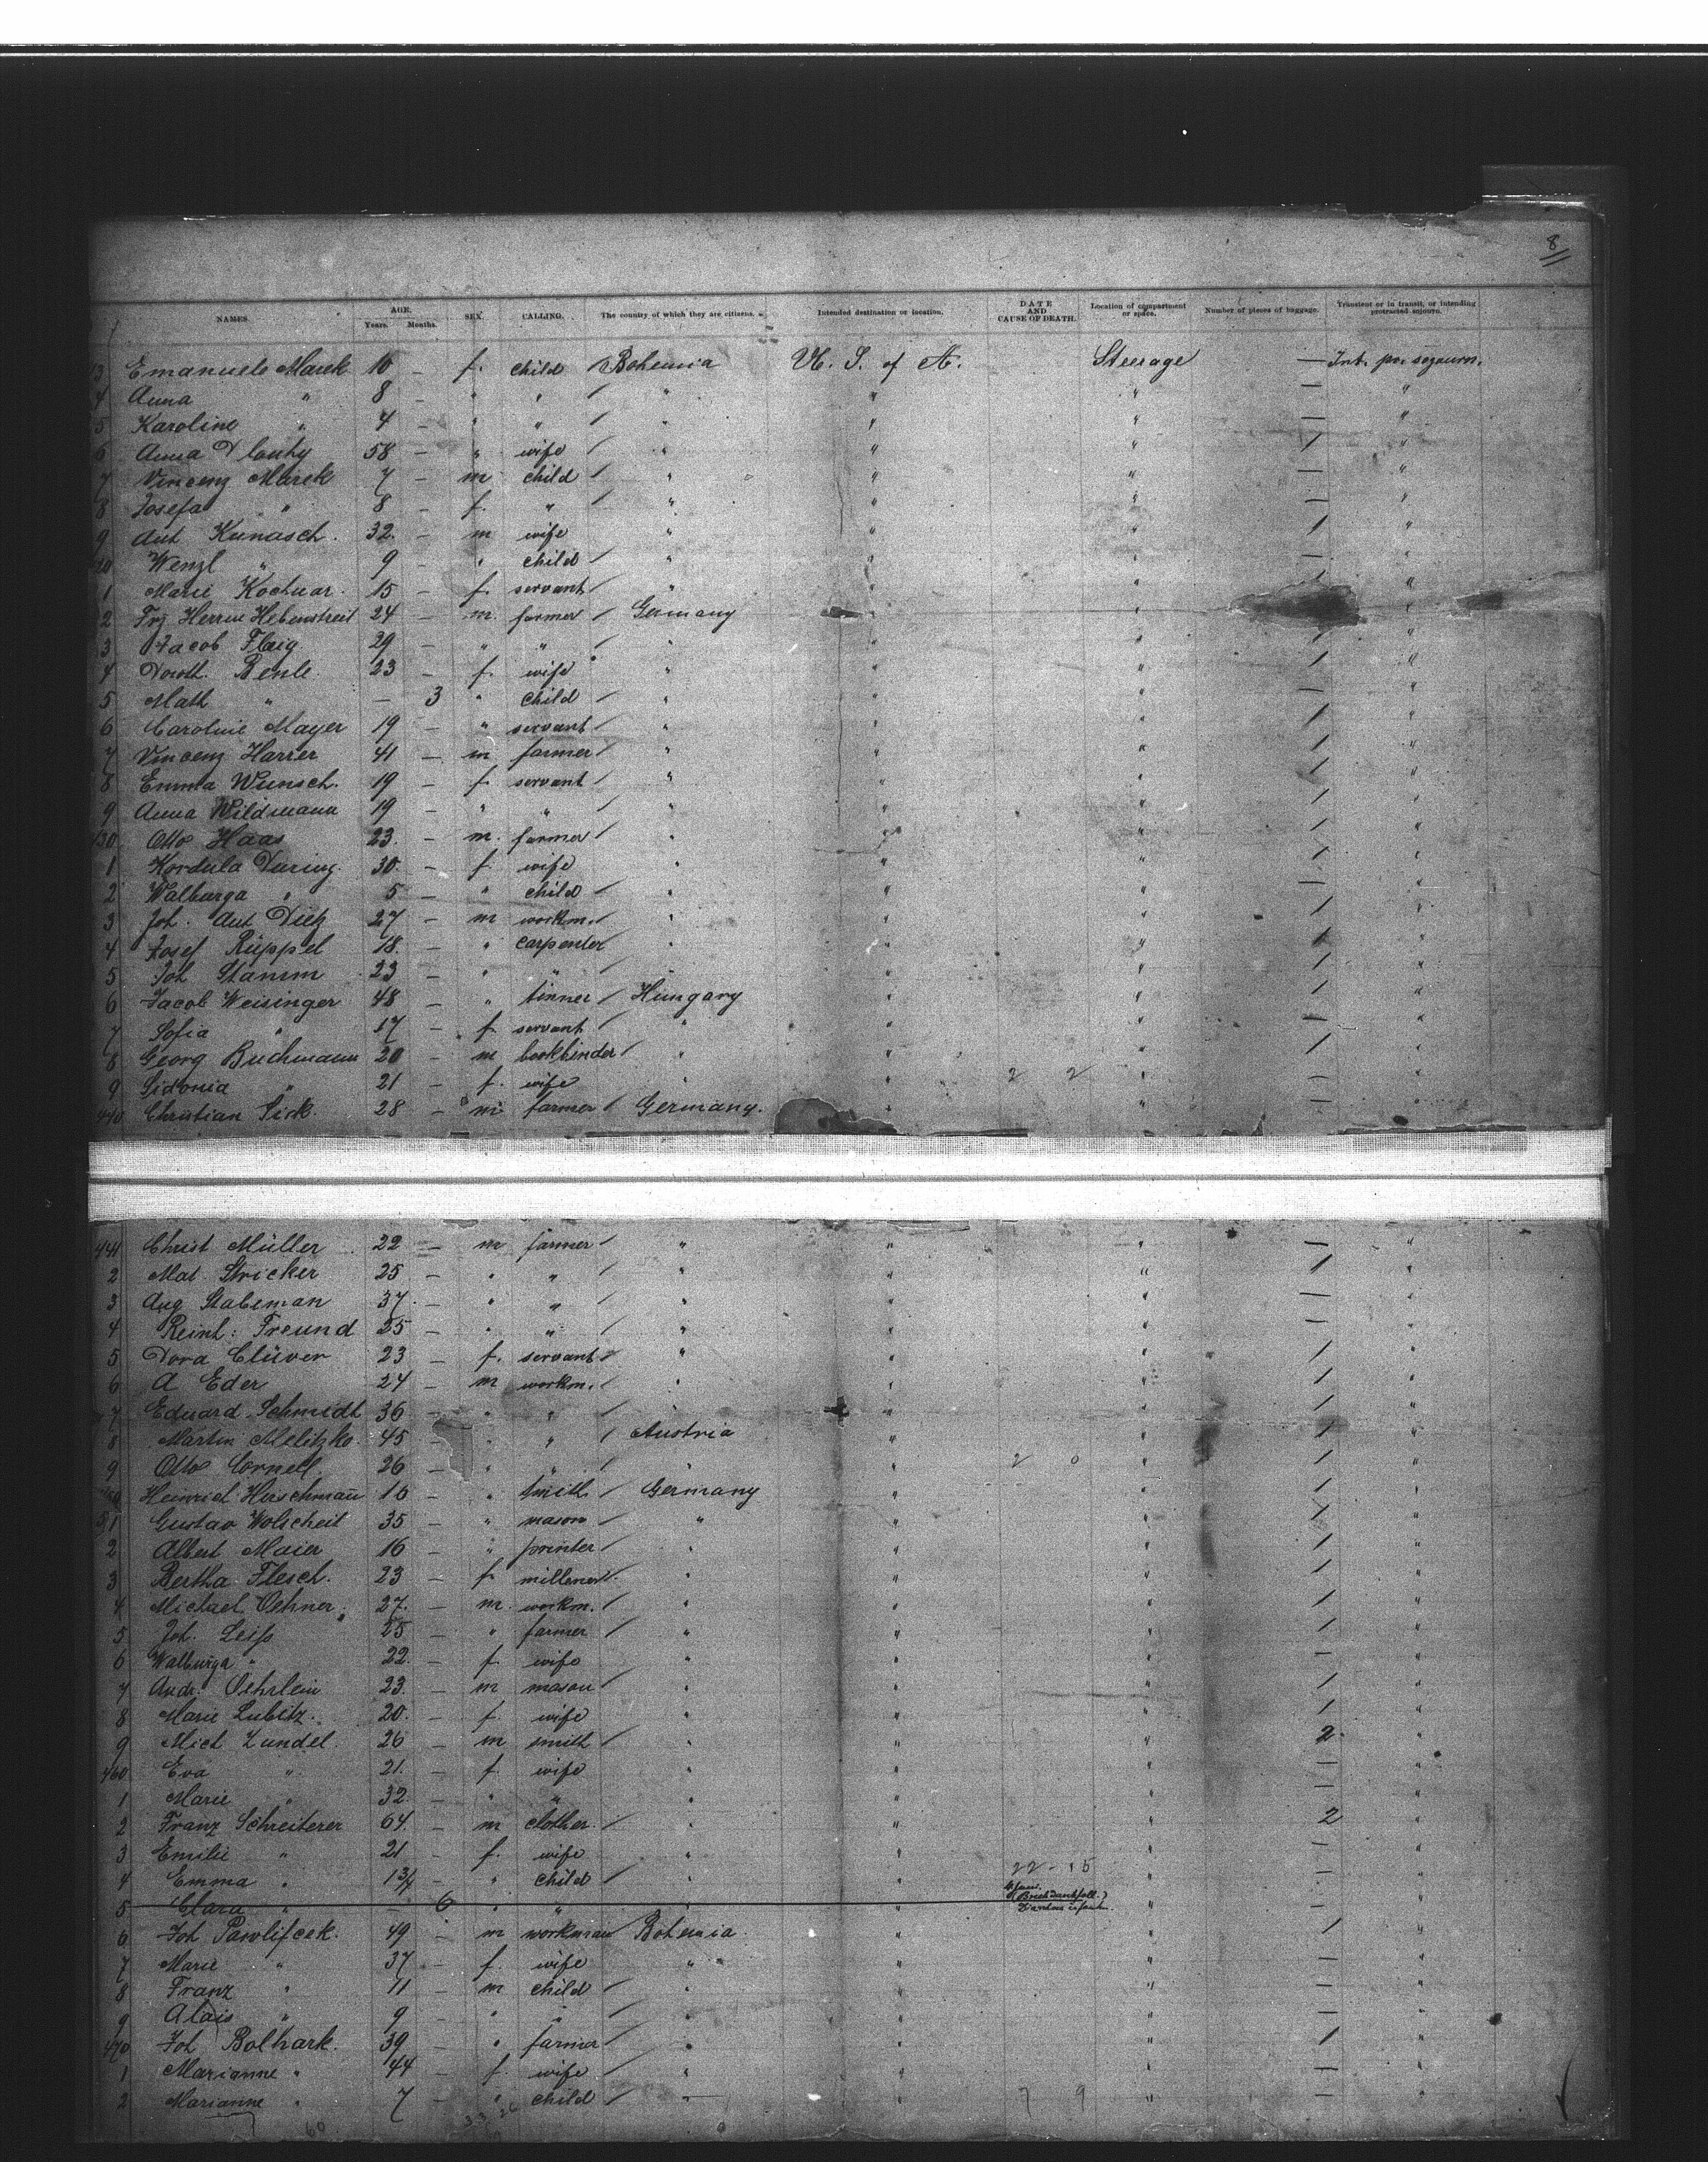 8
NAMES. AGE. Years. Months. SEX. CALLING. The country of which they are citizens. Intended destination or location. DATE AND CAUSE OF DEATH. Location of compartment or space. Number of pieces of baggage. Transient or in transit, or intending protracted sojourn.
3 Emanuele Marek 10 — f. child Bohemia U. S. of A. Steerage —
4 Anna " 8 — " " / " " " — "
5 Karoline " 4 — " " / " " " — "
6 Anna Dlouhy 58 — " wife / " " " / "
7 Vincenz Marek 7 — m child / " " " — "
8 Josefa " 8 — f. " / " " " — "
9 Ant Kunasch. 32. — m wife " " " / "
Wenzl " 9 — " child / " " " "
1 Marie 15 — f. servant / " " " "
2 Frz Herrm Hebenstreit 24 — m. farmer / Germany " "
3 Jacob Flaig 29 — " " / " " " / "
4 Doroth. 23 — f. wife " " " / "
5 Math " — 3 " child / " " " — "
6 Caroline Mayer 19 — " servant / " " " / "
7 Vincenz Harrer 41 — m farmer / " " " / "
8 Emma Wunsch. 19 — f. servant / " " " / "
9 Anna Wildmann 19 — " " / " " " / "
430 Otto Haas 23. — m. farmer / " " " / "
1 Kordula During. 30. — f. wife " " " / "
2 Walburga " 5 — " child / " " " — "
3 Joh. Ant Dietz 27 — m workm. / " " " / "
4 Josef Rüppel 18. — " carpenter / " " " / "
5 Joh Stamm 23 — " " / " " " / "
6 Jacob Weisinger 48 — " tinner / Hungary " " / "
7 Sofia " 17 — f. servant / " " " — "
8 Georg Buchmann 20 — m bookbinder / " " " / "
9 Sidonia " 21 — f. wife " " 2 2 " — "
440 Christian Sick. 28 — m. farmer / Germany. " " — "
441 Christ Müller 22 — m farmer / " " " — "
2 Mat. Stricker 25 — " " / " " " / "
3 Aug Stabeman 37. — " " / " " " — "
4 Reinh: Freund 25 — " " / " " " — "
5 Dora Clüver 23 — f. servant / " " " / "
6 A Eder 24 — m workm. / " " " / "
7 Eduard Schmidt 36 — " " / " " " / "
8 Martin Melitzko. 45 — " " / Austria " " / "
9 Otto Cornell. 26 — " " / " " 2 0 " / "
Heinrich Herschmann 16 — " smith / Germany " " / "
1 Gustav Wolscheit 35 — " mason / " " " / "
2 Albert Maier 16 — " printer / " " " / "
3 Bertha Flesch. 23 — f millener / " " " / "
4 Michael Oehner. 27. — m. workm. / " " " / "
5 Joh. Leiss 25 — " farmer / " " " / "
6 Walburga " 22. — f. wife " " " — "
7 Andr. Oehrlein 23. — m mason / " " " / "
8 Marie Lubitz. 20. — f. wife " " " / "
9 Mich Zundel. 26 — m smith / " " " 2 "
460 Eva " 21. — f. wife " " " — "
1 Marie " 32. — " " " " " — "
2 Franz Schreiterer 64. — m clother. / " " " 2 "
3 Emilie " 21 — f. wife " " " — "
4 Emma " 1 3/4 — " child / " " 22 - 15 " — "
5 Clara " — 6 " " " " "
6 Joh Pawlifcek. 49 — m workman Bohemia. " " / "
7 Marie " 37 — f. wife / " " " — "
8 Franz " 11 — m child / " " " — "
9 Alais " 9 — " " / " " " — "
470 Joh Bolhark. 39 — " farmer / " " " / "
1 Marianne " 44 — f. wife / " " " — "
2 Marianne " 7 — " child / " " 7 9 " — "
60 33 26